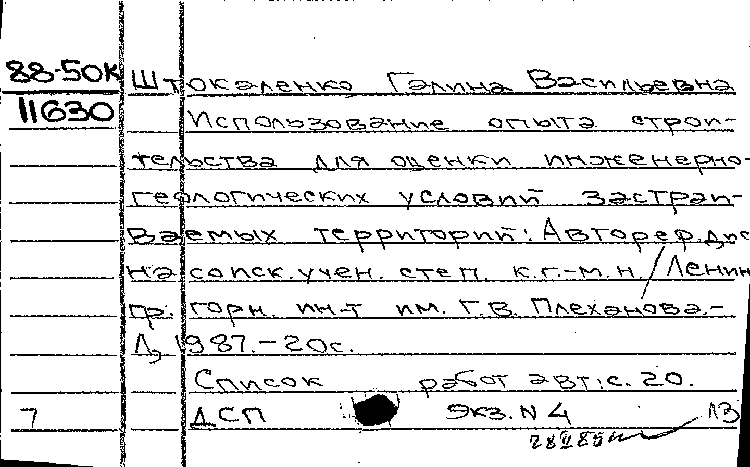 88-50К Штокаленко Галина Васильевна
11630 Использование опыта строи-
тельства для оценки инженерно-
геологических условий застраи-
ваемых территорий: Автореф. дис
на соиск. учен. степ. к.г.-м.н. / Ленин
гр. горн. ин-т им. Г.В. Плеханова.-
Л, 1987.-20с.
Список работ авт: с. 20.
7 ДСП Экз. N 4 ЛЗ